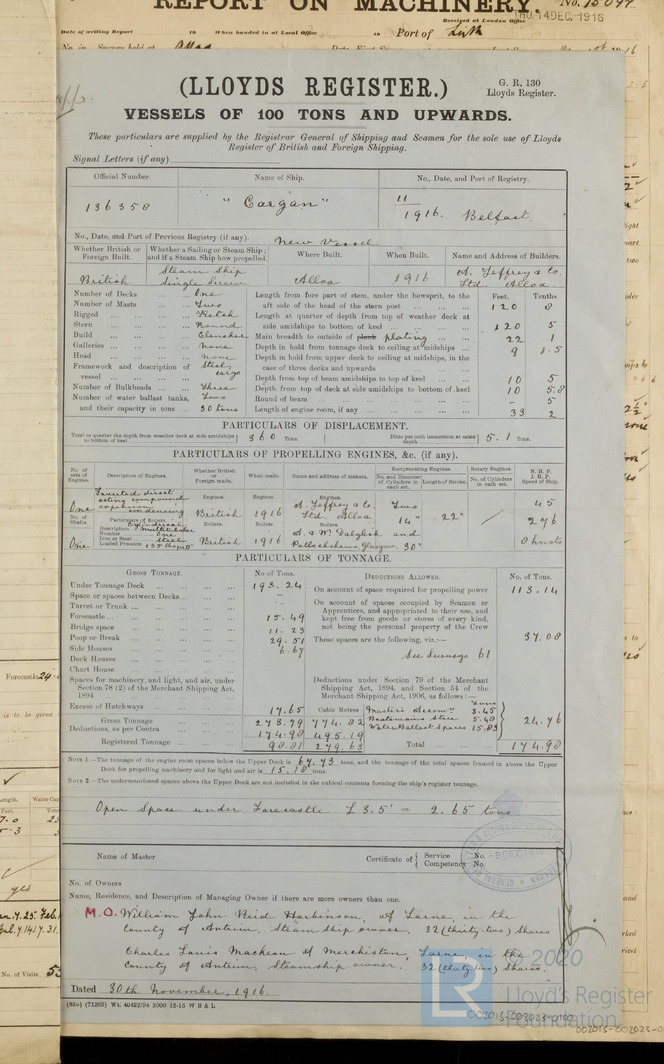 REPORT ON MACHINERY. No. 15097
Received at London Office THU. 14 DEC. 1916
Date of writing Report 19 When handed in at Local Office 19 Port of Leith
No. in Survey held at Alloa
(LLOYDS REGISTER.)
G. R. 130
Lloyds Register.
VESSELS OF 100 TONS AND UPWARDS.
These particulars are supplied by the Registrar General of Shipping and Seamen for the sole use of Lloyds
Register of British and Foreign Shipping.
Signal Letters (if any)
Official Number. Name of Ship. No., Date, and Port of Registry.
136358 "Cargan" 11/1916. Belfast.
No., Date, and Port of Previous Registry (if any). New Vessel
Whether British or Foreign Built. Whether a Sailing or Steam Ship; and if a Steam Ship how propelled. Where Built. When Built. Name and Address of Builders.
British Steam Ship Single Screw Alloa 1916 A. Jeffrey & Co. Ltd. Alloa
Feet. Tenths.
Number of Decks One
Number of Masts Two
Rigged Ketch
Stern Round
Build Clencher
Galleries none
Head none
Framework and description of vessel Steel, cargo
Number of Bulkheads Three
Number of water ballast tanks, Two
and their capacity in tons 30 tons
Length from fore part of stem, under the bowsprit, to the aft side of the head of the stern post 120 8
Length at quarter of depth from top of weather deck at side amidships to bottom of keel 120 5
Main breadth to outside of plank plating 22 1
Depth in hold from tonnage deck to ceiling at midships 9 1.5
Depth in hold from upper deck to ceiling at midships, in the case of three decks and upwards
Depth from top of beam amidships to top of keel 10 5
Depth from top of deck at side amidships to bottom of keel 10 5.8
Round of beam - 5
Length of engine room, if any 33 2
PARTICULARS OF DISPLACEMENT.
Total to quarter the depth from weather deck at side amidships to bottom of keel 360 Tons. Ditto per inch immersion at same depth 5.1 Tons.
PARTICULARS OF PROPELLING ENGINES, &c. (if any).
No. of sets of Engines. Description of Engines. Whether British or Foreign made. When made. Name and address of makers. Reciprocating Engines. No. and Diameter of Cylinders in each set. Length of Stroke. Rotary Engines. No. of Cylinders in each set. N. H. P. I. H. P. Speed of Ship.
One Inverted direct acting compound expansion condensing Engines. British Engines. 1916 Engines. A. Jeffrey & Co. Ltd, Alloa Two 14" and 30" 22" 45 276 8 knots
No. of Shafts. One Particulars of Boilers. Description Cylindrical Multitubular Number One Iron or Steel Steel Loaded Pressure
Boilers. British Boilers. 1916 Boilers. A. & W. Dalglish Pollockshaws, Glasgow
PARTICULARS OF TONNAGE.
GROSS TONNAGE. No of Tons. DEDUCTIONS ALLOWED. No. of Tons.
Under Tonnage Deck 193.24
Space or spaces between Decks -
Turret or Trunk -
Forecastle 15.49
Bridge space 11.23
Poop or Break 29.51
Side Houses 6.67
Deck Houses
Chart House
Spaces for machinery, and light, and air, under Section 78 (2) of the Merchant Shipping Act, 1894
Excess of Hatchways 17.65
Cubic Metres
Gross Tonnage 273.79 774.82
Deductions, as per Contra 174.98 495.19
Registered Tonnage 98.81 279.63
On account of space required for propelling power 113.14
On account of spaces occupied by Seamen or Apprentices, and appropriated to their use, and kept free from goods or stores of every kind, not being the personal property of the Crew 37.08
These spaces are the following, viz.:—
See Surveys 61
Deductions under Section 79 of the Merchant Shipping Act, 1894, and Section 54 of the Merchant Shipping Act, 1906, as follows:—
Tons
Master's accomn 3.45
Boatswains Store 5.48
Water Ballast Spaces 15.83
24.76
Total 174.98
NOTE 1.—The tonnage of the engine room spaces below the Upper Deck is 67.73 tons, and the tonnage of the total spaces framed in above the Upper
Deck for propelling machinery and for light and air is 15.18 tons.
NOTE 2.—The undermentioned spaces above the Upper Deck are not included in the cubical contents forming the ship's register tonnage.
Open Space under Forecastle L 3.5' = 2.65 tons
Name of Master Certificate of Service No. Competency No.
9 DEC 1916
No. of Owners
Name, Residence, and Description of Managing Owner if there are more owners than one.
M.O. William John Reid Harbinson, of Larne, in the
County of Antrim, Steam ship owner. 32 (thirty-two) Shares
Charles Louis Mackean of Merchiston, Larne in the
County of Antrim, Steamship owner. 32 (thirty two) Shares.
Dated 30th November, 1916.
(83o) (71265) Wt. 40422/94 2000 12-15 W B & L
Forecastle
is to be given
yes
No. of Visits
© 2020
LR
Lloyd's Register
Foundation
002013-002023-0190